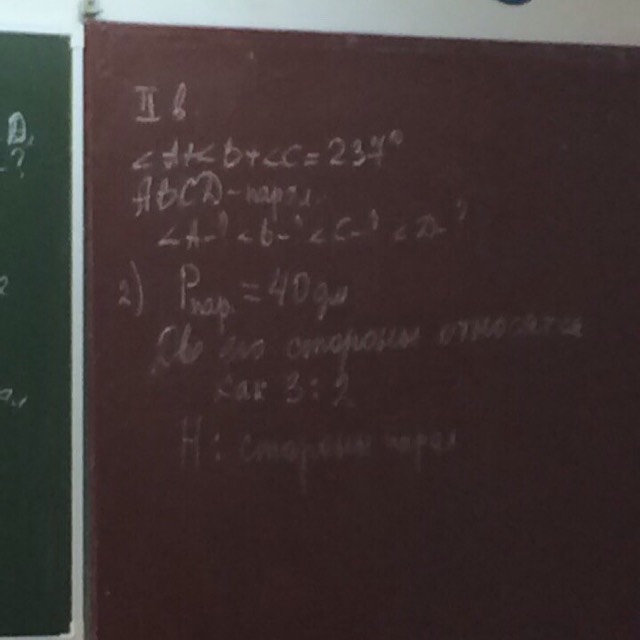 II в
<A+<B+<C=237°
ABCD-парал.
<A-? <B-? <C-? <D-?
2) Pпар=40дм
его стороны относятся
как 3:2
Н: стороны парал